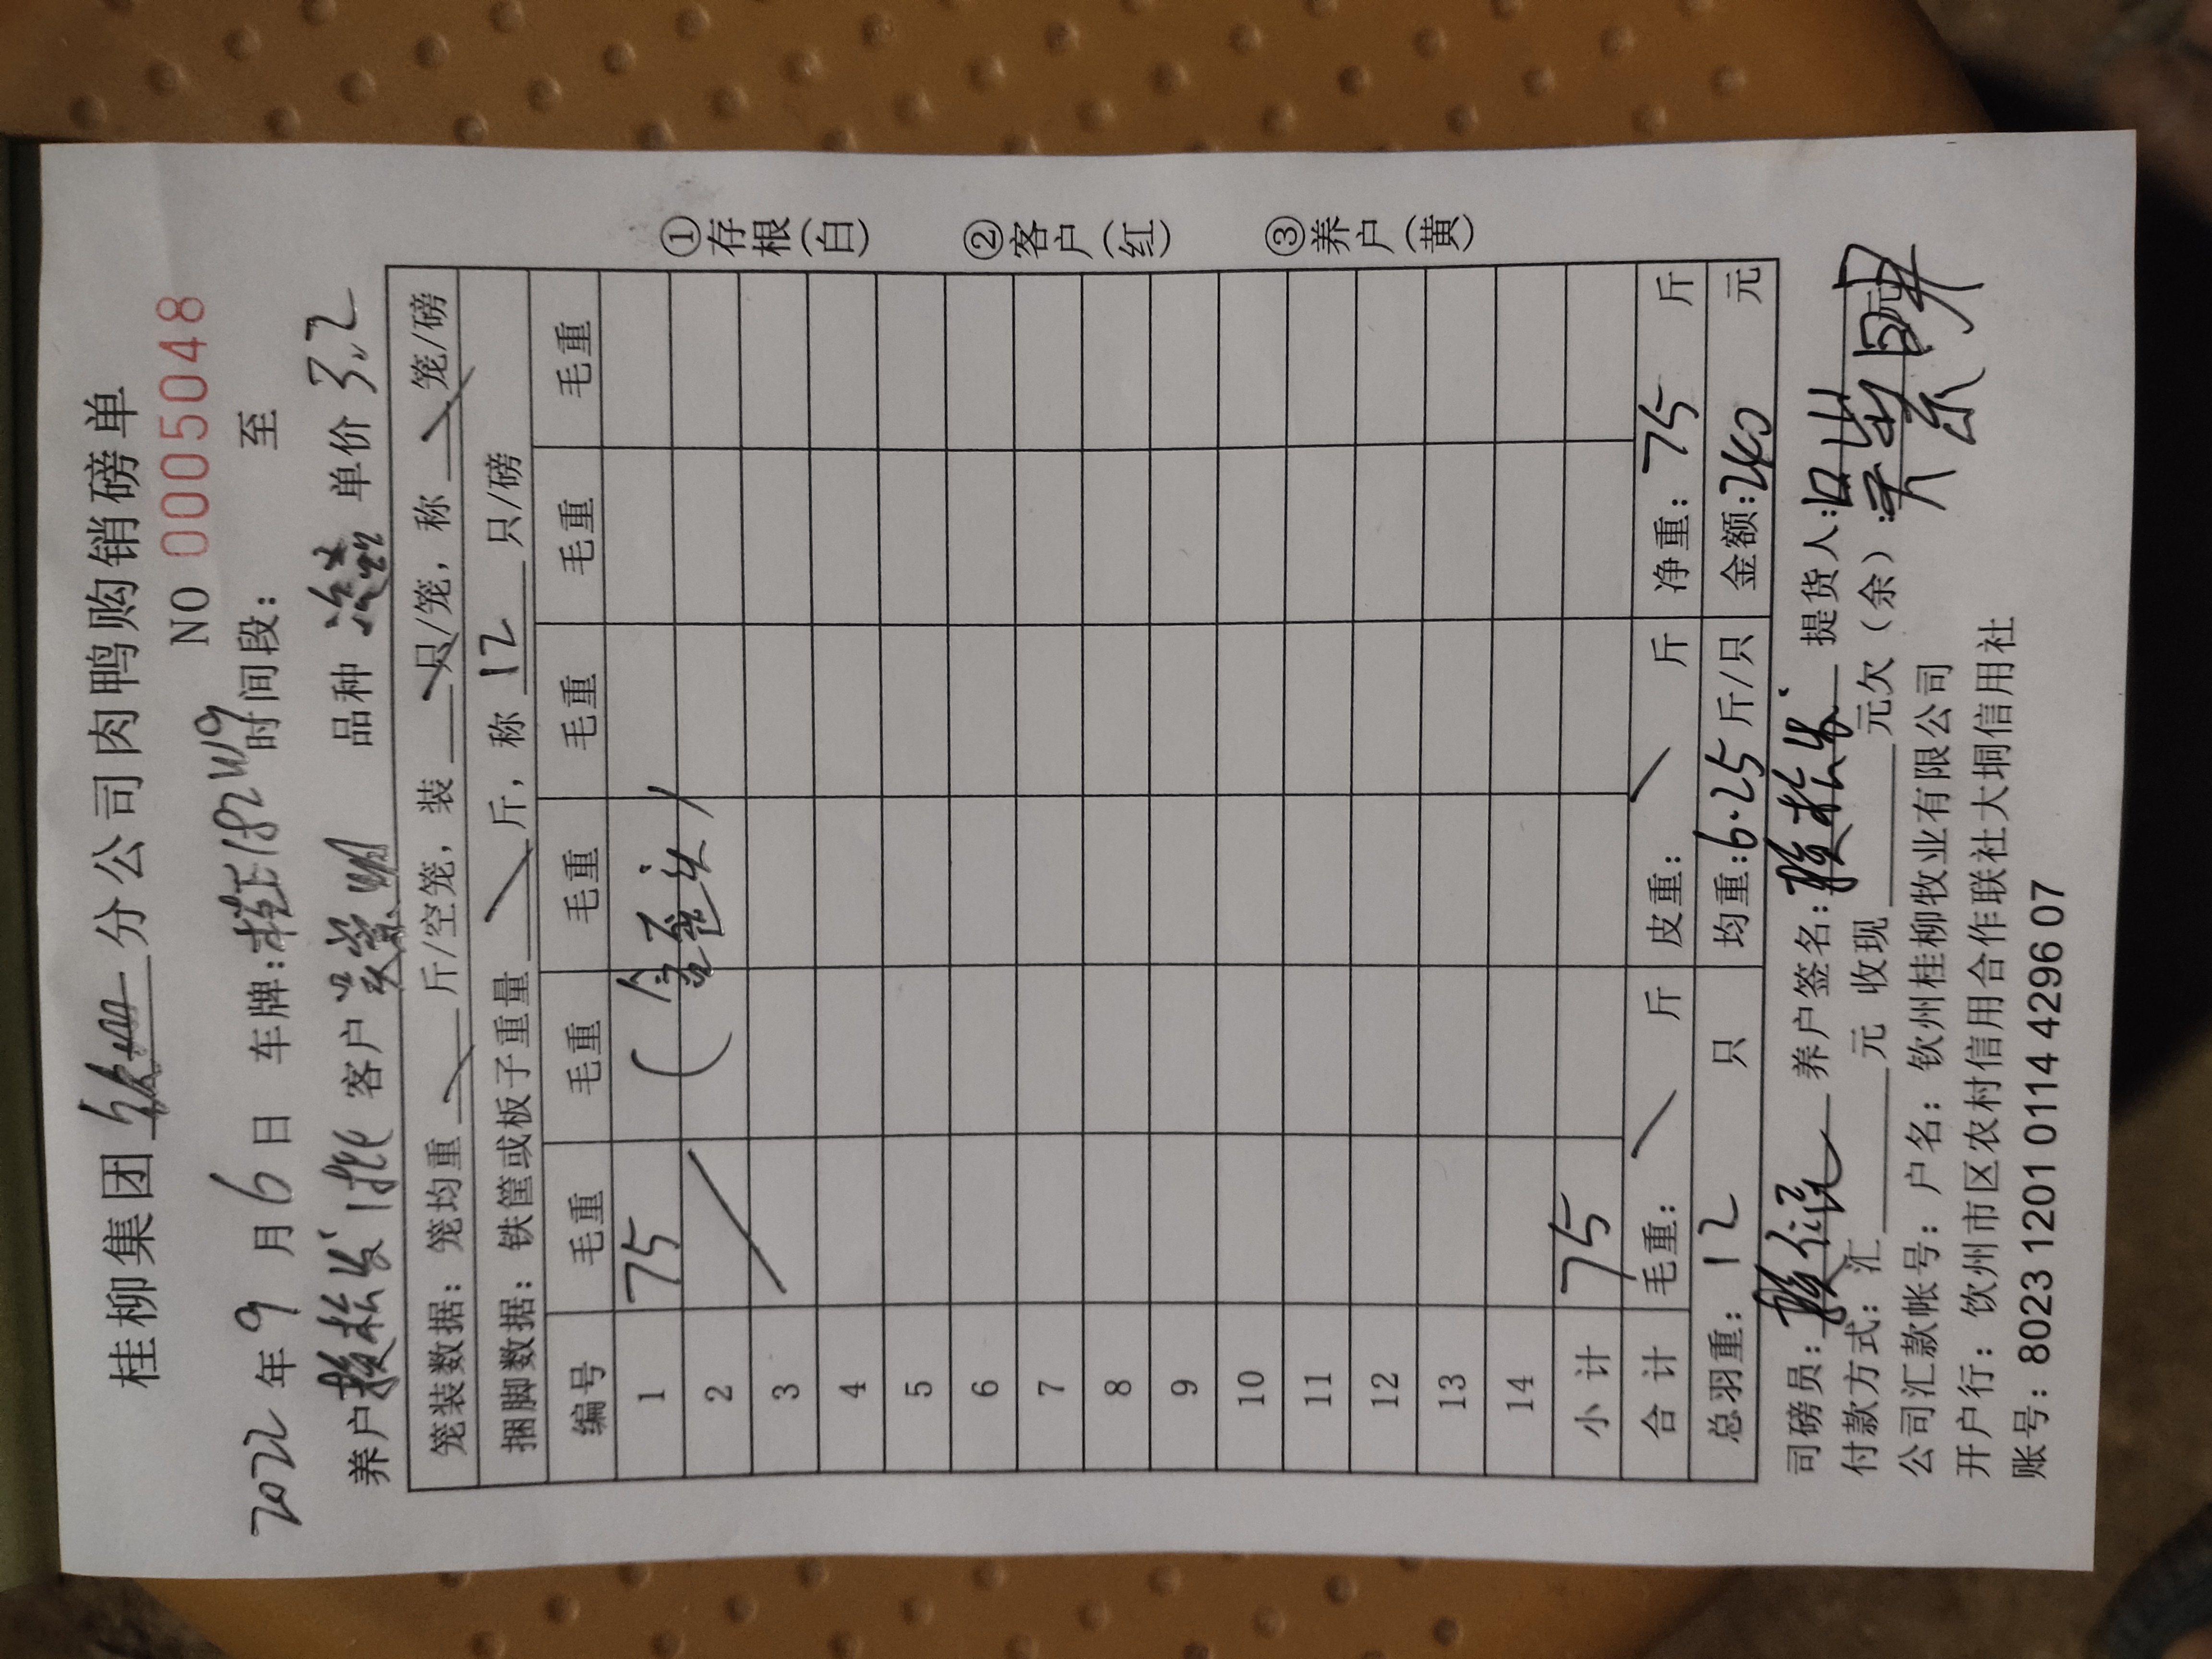 桂柳集团 钦州 分公司肉鸭购销磅单
NO 0005048
2022 年 9 月 6 日 车牌: 桂 182W9 时间段: 至
养户 赖松发 1批 客户 品种 单价 3.2
笼装数据: 笼均重 斤/空笼, 装 只/笼, 称 笼/磅
捆脚数据: 铁筐或板子重量 斤, 称 12 只/磅
编号 毛重 毛重 毛重 毛重 毛重 毛重
1 75
2
3
4
5
6
7
8
9
10
11
12
13
14
小计 75
合计 毛重: 斤 皮重: 斤 净重: 75 斤
总羽重: 12 只 均重: 6.25 斤/只 金额: 240 元
司磅员: 养户签名: 赖松发 提货人:
付款方式: 汇 元 收现 元欠(余): 元
公司汇款帐号: 户名: 钦州桂柳牧业有限公司
开户行: 钦州市市区农村信用合作联社大垌信用社
账号: 8023 1201 0114 4296 07
①存根(白) ②客户(红) ③养户(黄)